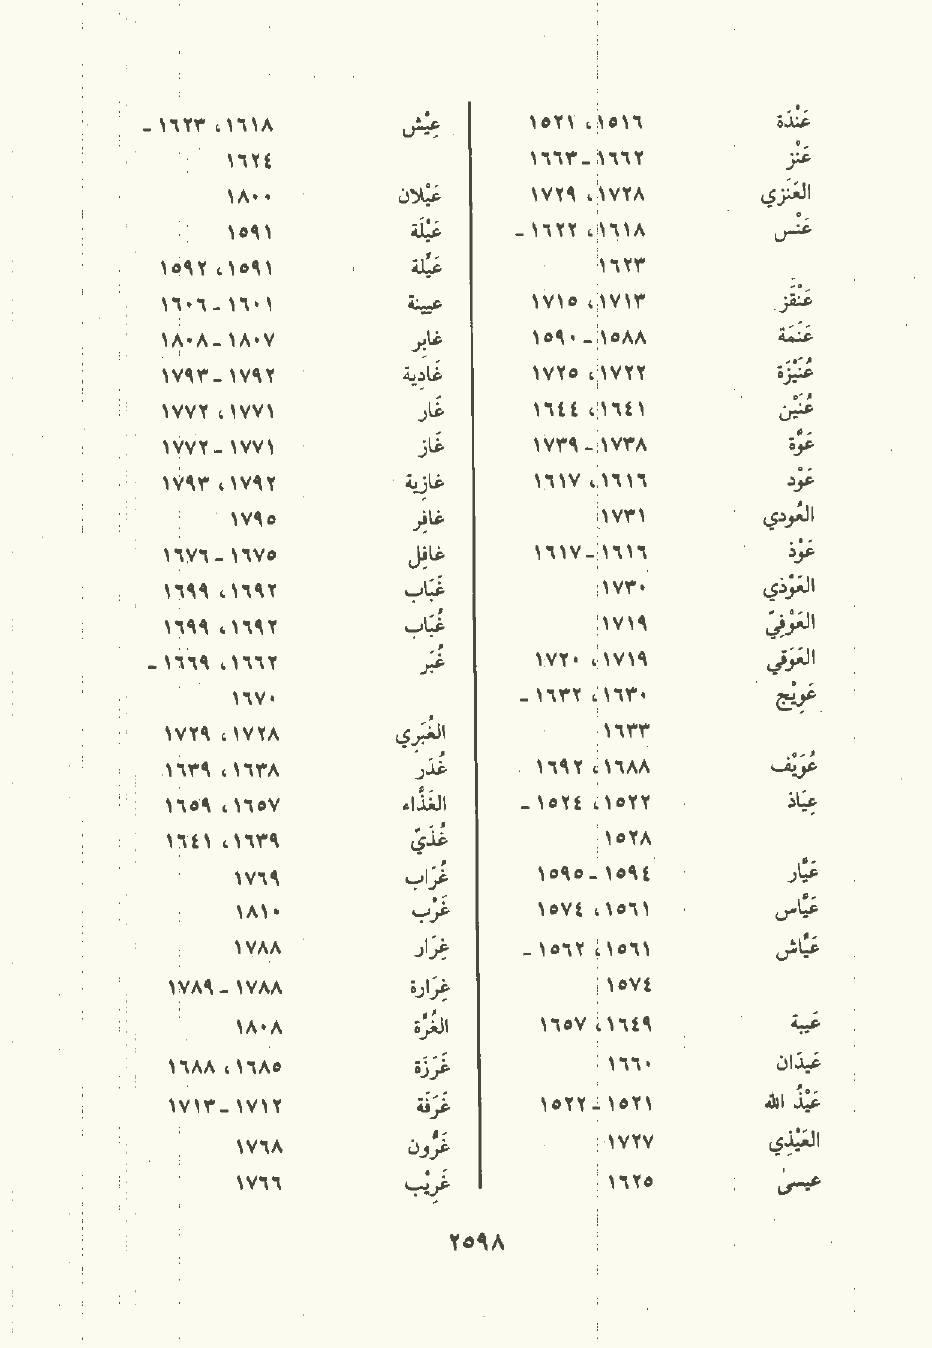 عَنْدَة ١٥١٦، ١٥٢١
عَنْز ١٦٦٢ ـ ١٦٦٣
العَنَزي ١٧٢٨، ١٧٢٩
عَنْس ١٦١٨، ١٦٢٢ ـ
١٦٢٣
عَنْقَز ١٧١٣، ١٧١٥
عَنَمَة ١٥٨٨ ـ ١٥٩٠
عُنَيْزَة ١٧٢٢، ١٧٢٥
عُنَيْن ١٦٤١، ١٦٤٤
عَوَّة ١٧٣٨ ـ ١٧٣٩
عَوْد ١٦١٦، ١٦١٧
العُودي ١٧٣١
عَوْذ ١٦١٦ ـ ١٦١٧
العَوْذي ١٧٣٠
العَوْفِيّ ١٧١٩
العَوَقي ١٧١٩، ١٧٢٠
عَوِيْج ١٦٣٠، ١٦٣٢ ـ
١٦٣٣
عُوَيْف ١٦٨٨، ١٦٩٢
عِيَاذ ١٥٢٢، ١٥٢٤ ـ
١٥٢٨
عَيَّار ١٥٩٤ ـ ١٥٩٥
عَيَّاس ١٥٦١، ١٥٧٤
عَيَّاش ١٥٦١، ١٥٦٢ ـ
١٥٧٤
عَيبة ١٦٤٩، ١٦٥٧
عَيدَان ١٦٦٠
عَيْذُ الله ١٥٢١ ـ ١٥٢٢
العَيْذِي ١٧٢٧
عيسىٰ ١٦٢٥
عِيْش ١٦١٨، ١٦٢٣ ـ
١٦٢٤
عَيْلان ١٨٠٠
عَيْلَة ١٥٩١
عَيِّلة ١٥٩١، ١٥٩٢
عيينة ١٦٠١ ـ ١٦٠٦
غابِر ١٨٠٧ ـ ١٨٠٨
غَادِية ١٧٩٢ ـ ١٧٩٣
غَار ١٧٧١، ١٧٧٢
غَاز ١٧٧١ ـ ١٧٧٢
غازِية ١٧٩٢، ١٧٩٣
غافِر ١٧٩٥
غافِل ١٦٧٥ ـ ١٦٧٦
غَبَاب ١٦٩٢، ١٦٩٩
غُبَاب ١٦٩٢، ١٦٩٩
غُبَر ١٦٦٢، ١٦٦٩ ـ
١٦٧٠
الغُبَرِي ١٧٢٨، ١٧٢٩
غُدَر ١٦٣٨، ١٦٣٩
الغَذَّاء ١٦٥٧، ١٦٥٩
غُذَيّ ١٦٣٩، ١٦٤١
غُرَاب ١٧٦٩
غَرْب ١٨١٠
غِرَار ١٧٨٨
غِرَارة ١٧٨٨ ـ ١٧٨٩
الغُرَّة ١٨٠٨
غَرَزَة ١٦٨٥، ١٦٨٨
غَرَفَة ١٧١٢ ـ ١٧١٣
غَرُّون ١٧٦٨
غَرِيْب ١٧٦٦
٢٥٩٨